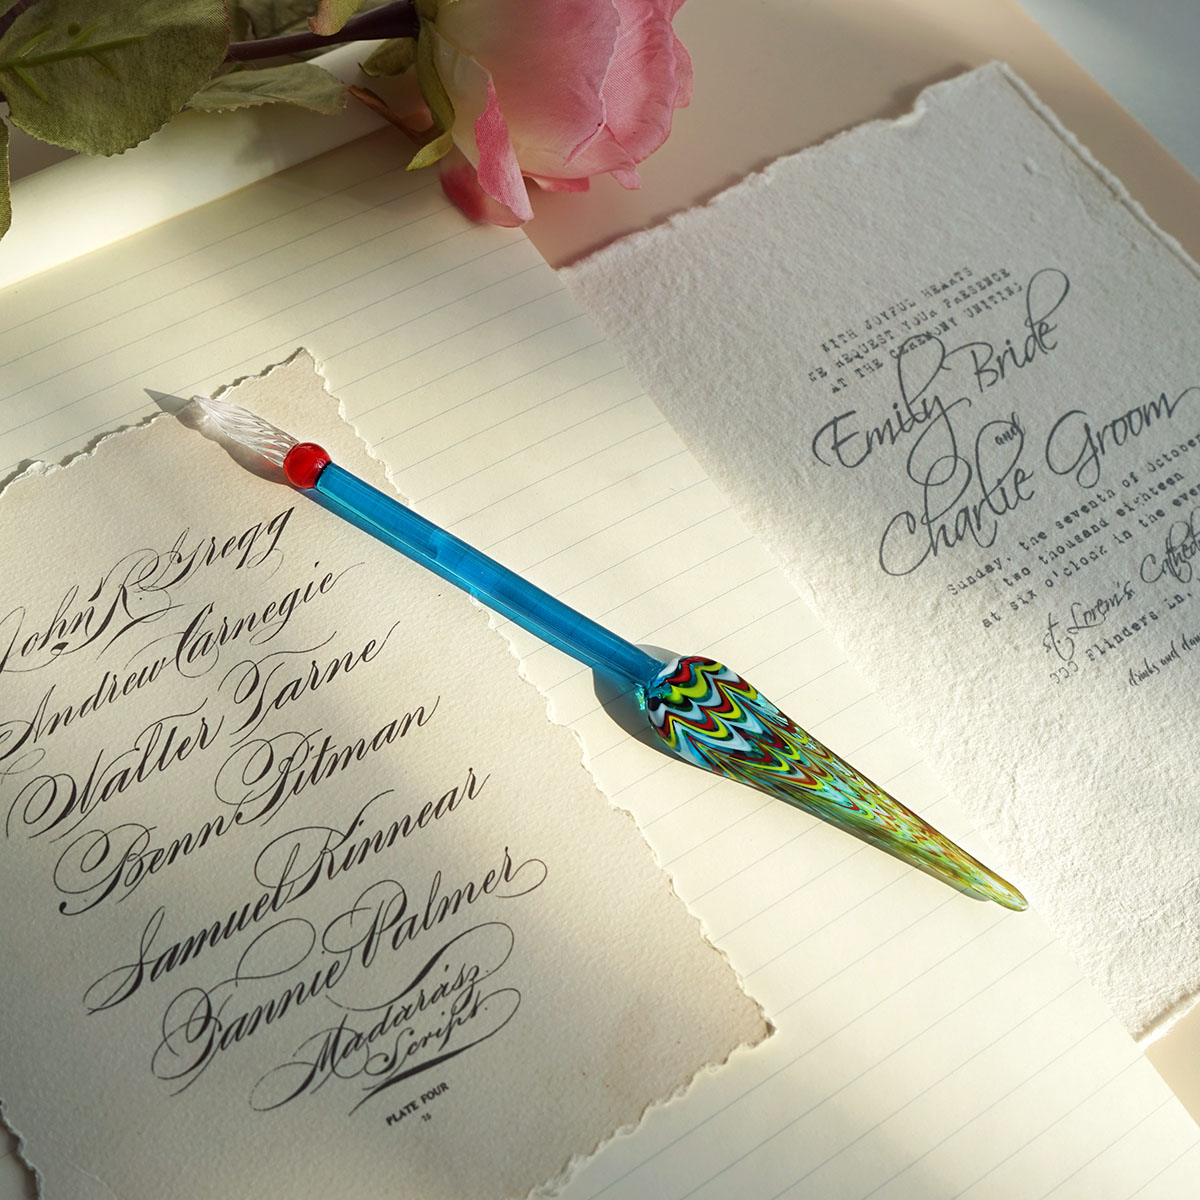 John R. Gregg
Andrew Carnegie
Walter Tarne
Benn Pitman
Samuel Kinnear
Fannie Palmer
Madarász
Script.
PLATE FOUR
WITH JOYFUL HEARTS
WE REQUEST YOUR PRESENCE
AT THE CEREMONY UNITING
Emily Bride
and
Charlie Groom
Sunday, the seventh of October
two thousand eighteen
at six o'clock in the
St. Lorem's
333 Flinders Ln,
drinks and